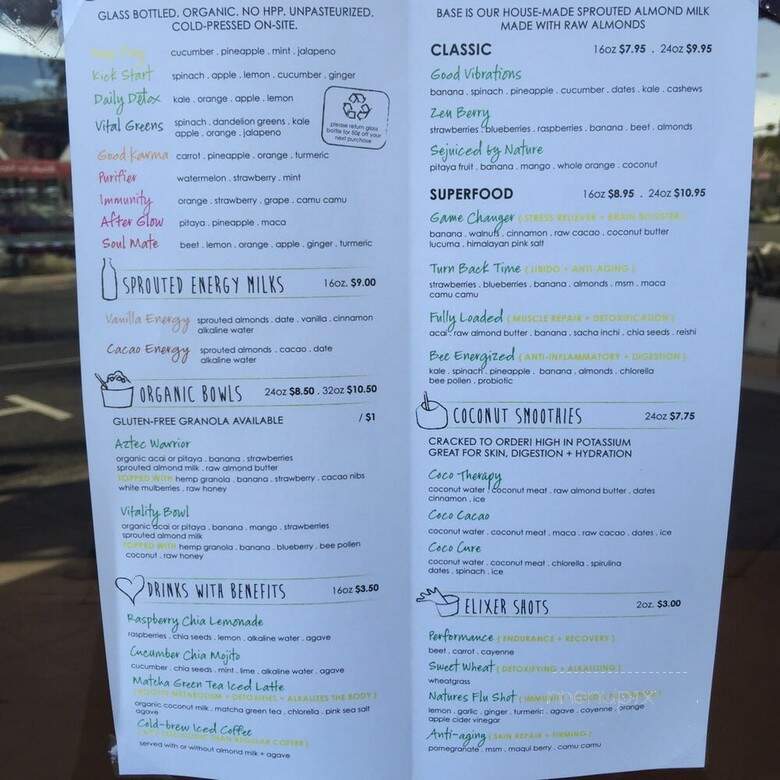 GLASS BOTTLED. ORGANIC. NO HPP. UNPASTEURIZED.
COLD-PRESSED ON-SITE.
cucumber . pineapple . mint . jalapeno
Kick Start spinach . apple . lemon . cucumber . ginger
Daily Detox kale . orange . apple . lemon
Vital Greens spinach . dandelion greens . kale
apple . orange . jalapeno
please return glass
bottle for 50¢ off your
next purchase
Good Karma carrot . pineapple . orange . turmeric
Purifier watermelon . strawberry . mint
Immunity orange . strawberry . grape . camu camu
After Glow pitaya . pineapple . maca
Soul Mate beet . lemon . orange . apple . ginger . turmeric
SPROUTED ENERGY MILKS 16oz. $9.00
Vanilla Energy sprouted almonds . date . vanilla . cinnamon
alkaline water
Cacao Energy sprouted almonds . cacao . date
alkaline water
ORGANIC BOWLS 24oz $8.50 . 32oz $10.50
GLUTEN-FREE GRANOLA AVAILABLE / $1
Aztec Warrior
organic acai or pitaya . banana . strawberries
sprouted almond milk . raw almond butter
TOPPED WITH hemp granola . banana . strawberry . cacao nibs
white mulberries . raw honey
Vitality Bowl
organic acai or pitaya . banana . mango . strawberries
sprouted almond milk
TOPPED WITH hemp granola . banana . blueberry . bee pollen
coconut . raw honey
DRINKS WITH BENEFITS 16oz $3.50
Raspberry Chia Lemonade
raspberries . chia seeds . lemon . alkaline water . agave
Cucumber Chia Mojito
cucumber . chia seeds . mint . lime . alkaline water . agave
Matcha Green Tea Iced Latte
( BOOSTS METABOLISM + DETOXIFIES + ALKALIZES THE BODY )
organic coconut milk . matcha green tea . chlorella . pink sea salt
agave
Cold-brew Iced Coffee
THAN REGULAR COFFEE )
served with or without almond milk + agave
BASE IS OUR HOUSE-MADE SPROUTED ALMOND MILK
MADE WITH RAW ALMONDS
CLASSIC 16oz $7.95 . 24oz $9.95
Good Vibrations
banana . spinach . pineapple . cucumber . dates . kale . cashews
Zen Berry
strawberries . blueberries . raspberries . banana . beet . almonds
Sejuiced by Nature
pitaya fruit . banana . mango . whole orange . coconut
SUPERFOOD 16oz $8.95 . 24oz $10.95
Game Changer ( STRESS RELIEVER + BRAIN BOOSTER )
banana . walnuts . cinnamon . raw cacao . coconut butter
lucuma . himalayan pink salt
Turn Back Time ( LIBIDO + ANTI-AGING )
strawberries . blueberries . banana . almonds . msm . maca
camu camu
Fully Loaded ( MUSCLE REPAIR + DETOXIFICATION )
acai . raw almond butter . banana . sacha inchi . chia seeds . reishi
Bee Energized ( ANTI-INFLAMMATORY + DIGESTION )
kale . spinach . pineapple . banana . almonds . chlorella
bee pollen . probiotic
COCONUT SMOOTHIES 24oz $7.75
CRACKED TO ORDER! HIGH IN POTASSIUM
GREAT FOR SKIN, DIGESTION + HYDRATION
Coco Therapy
coconut water . coconut meat . raw almond butter . dates
cinnamon . ice
Coco Cacao
coconut water . coconut meat . maca . raw cacao . dates . ice
Coco Cure
coconut water . coconut meat . chlorella . spirulina
dates . spinach . ice
ELIXER SHOTS 2oz. $3.00
Performance ( ENDURANCE + RECOVERY )
beet . carrot . cayenne
Sweet Wheat ( DETOXIFYING + ALKALIZING )
wheatgrass
Natures Flu Shot ( IMMUNITY
lemon . garlic . ginger . turmeric . agave . cayenne . orange
apple cider vinegar
Anti-aging ( SKIN REPAIR + FIRMING )
pomegranate . msm . maqui berry . camu camu